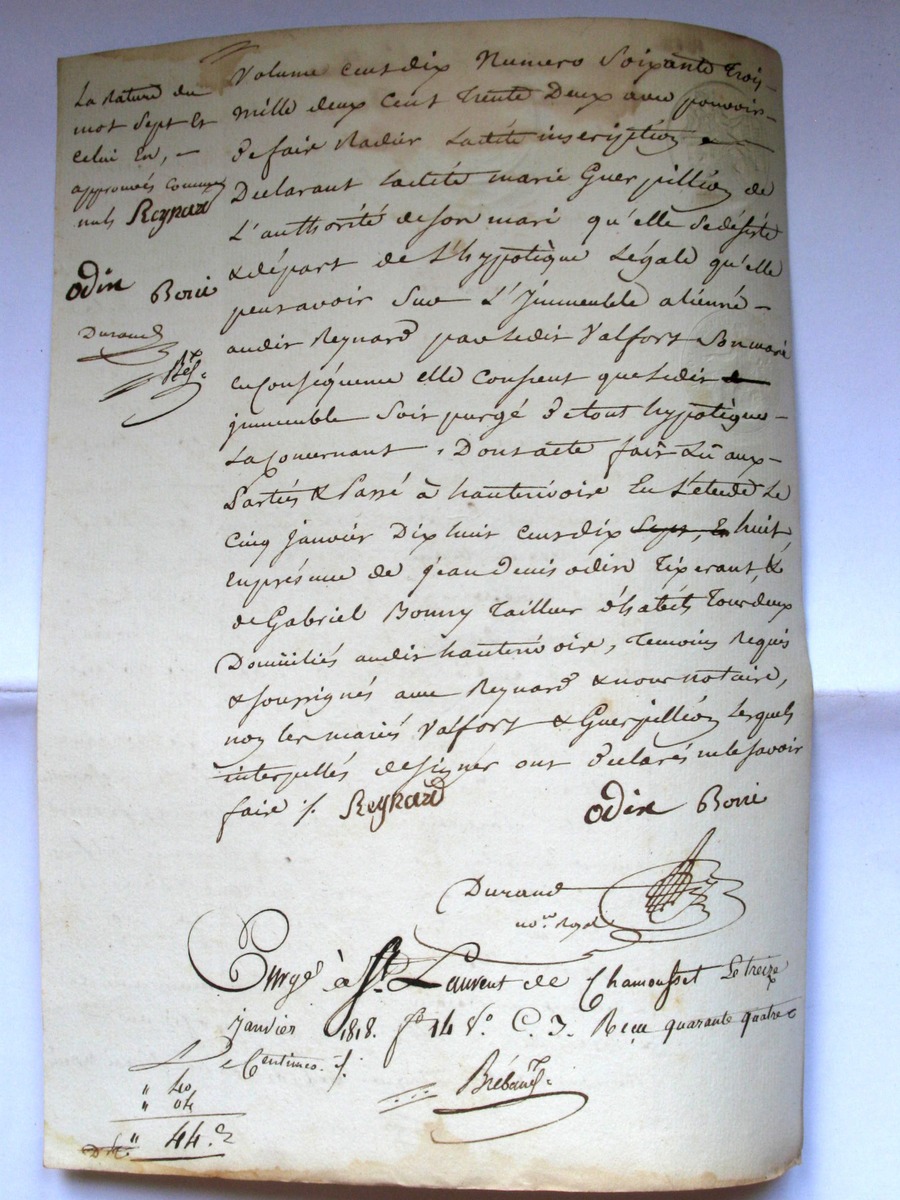 La rature du
mot sept et
celui en, —
approuvés comme
nuls Reynard
odin Boni
Durand
Volume cent dix Numero Soixante Trois
mille deux Cent Trente Deux avec pouvoir
de faire Radier Ladite inscription
Declarant ladite marie Guerpillion de
L'authorité de son mari qu'elle se désiste
& départ de L'hypotèque Légale qu'elle
peut avoir Sur L'Immeuble aliené
audit Reynard par ledit Valfort Son mari
En conséquence elle Consent que ledit
immeuble Soit purgé de tout hypotèque
La Concernant. Dont acte fait Lu aux
Parties & Passé à hauterivoire En L'etude Le
Cinq janvier Dix huit cent dix Sept, En huit,
En présence de jean Denis odin Tixerant, &
de Gabriel Bonny Tailleur d'habits Tous deux
Domiciliés audit hauterivoire, Temoins Requis
& soussignés avec Reynard & nous notaire,
non les mariés Valfort & Guerpillion Lesquels
interpellés de signer ont Declarés ne le Savoir
faire ⁒ Reynard odin Boni
Durand
no.re Royal
Enrgé à St. Laurent de Chamousset Le treize
janvier 1818. fo 14 Vo. C. 7. Reçu quarante quatre
Centimes ⁒
" 40
" 04
" 44.c